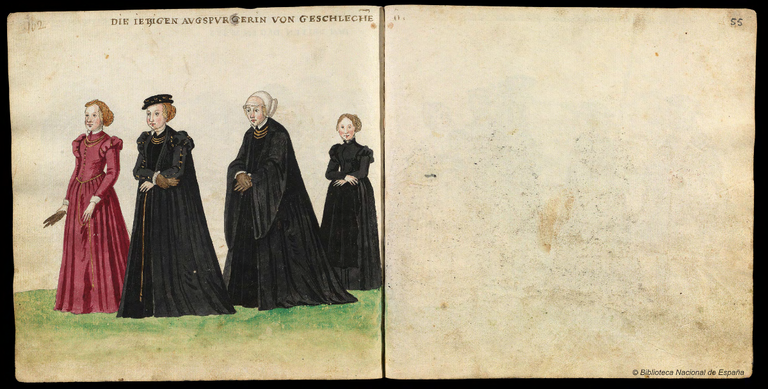 DIE IEBIGEN AVGSPVRGERIN VON GESCHLECHE
55
© Biblioteca Nacional de España